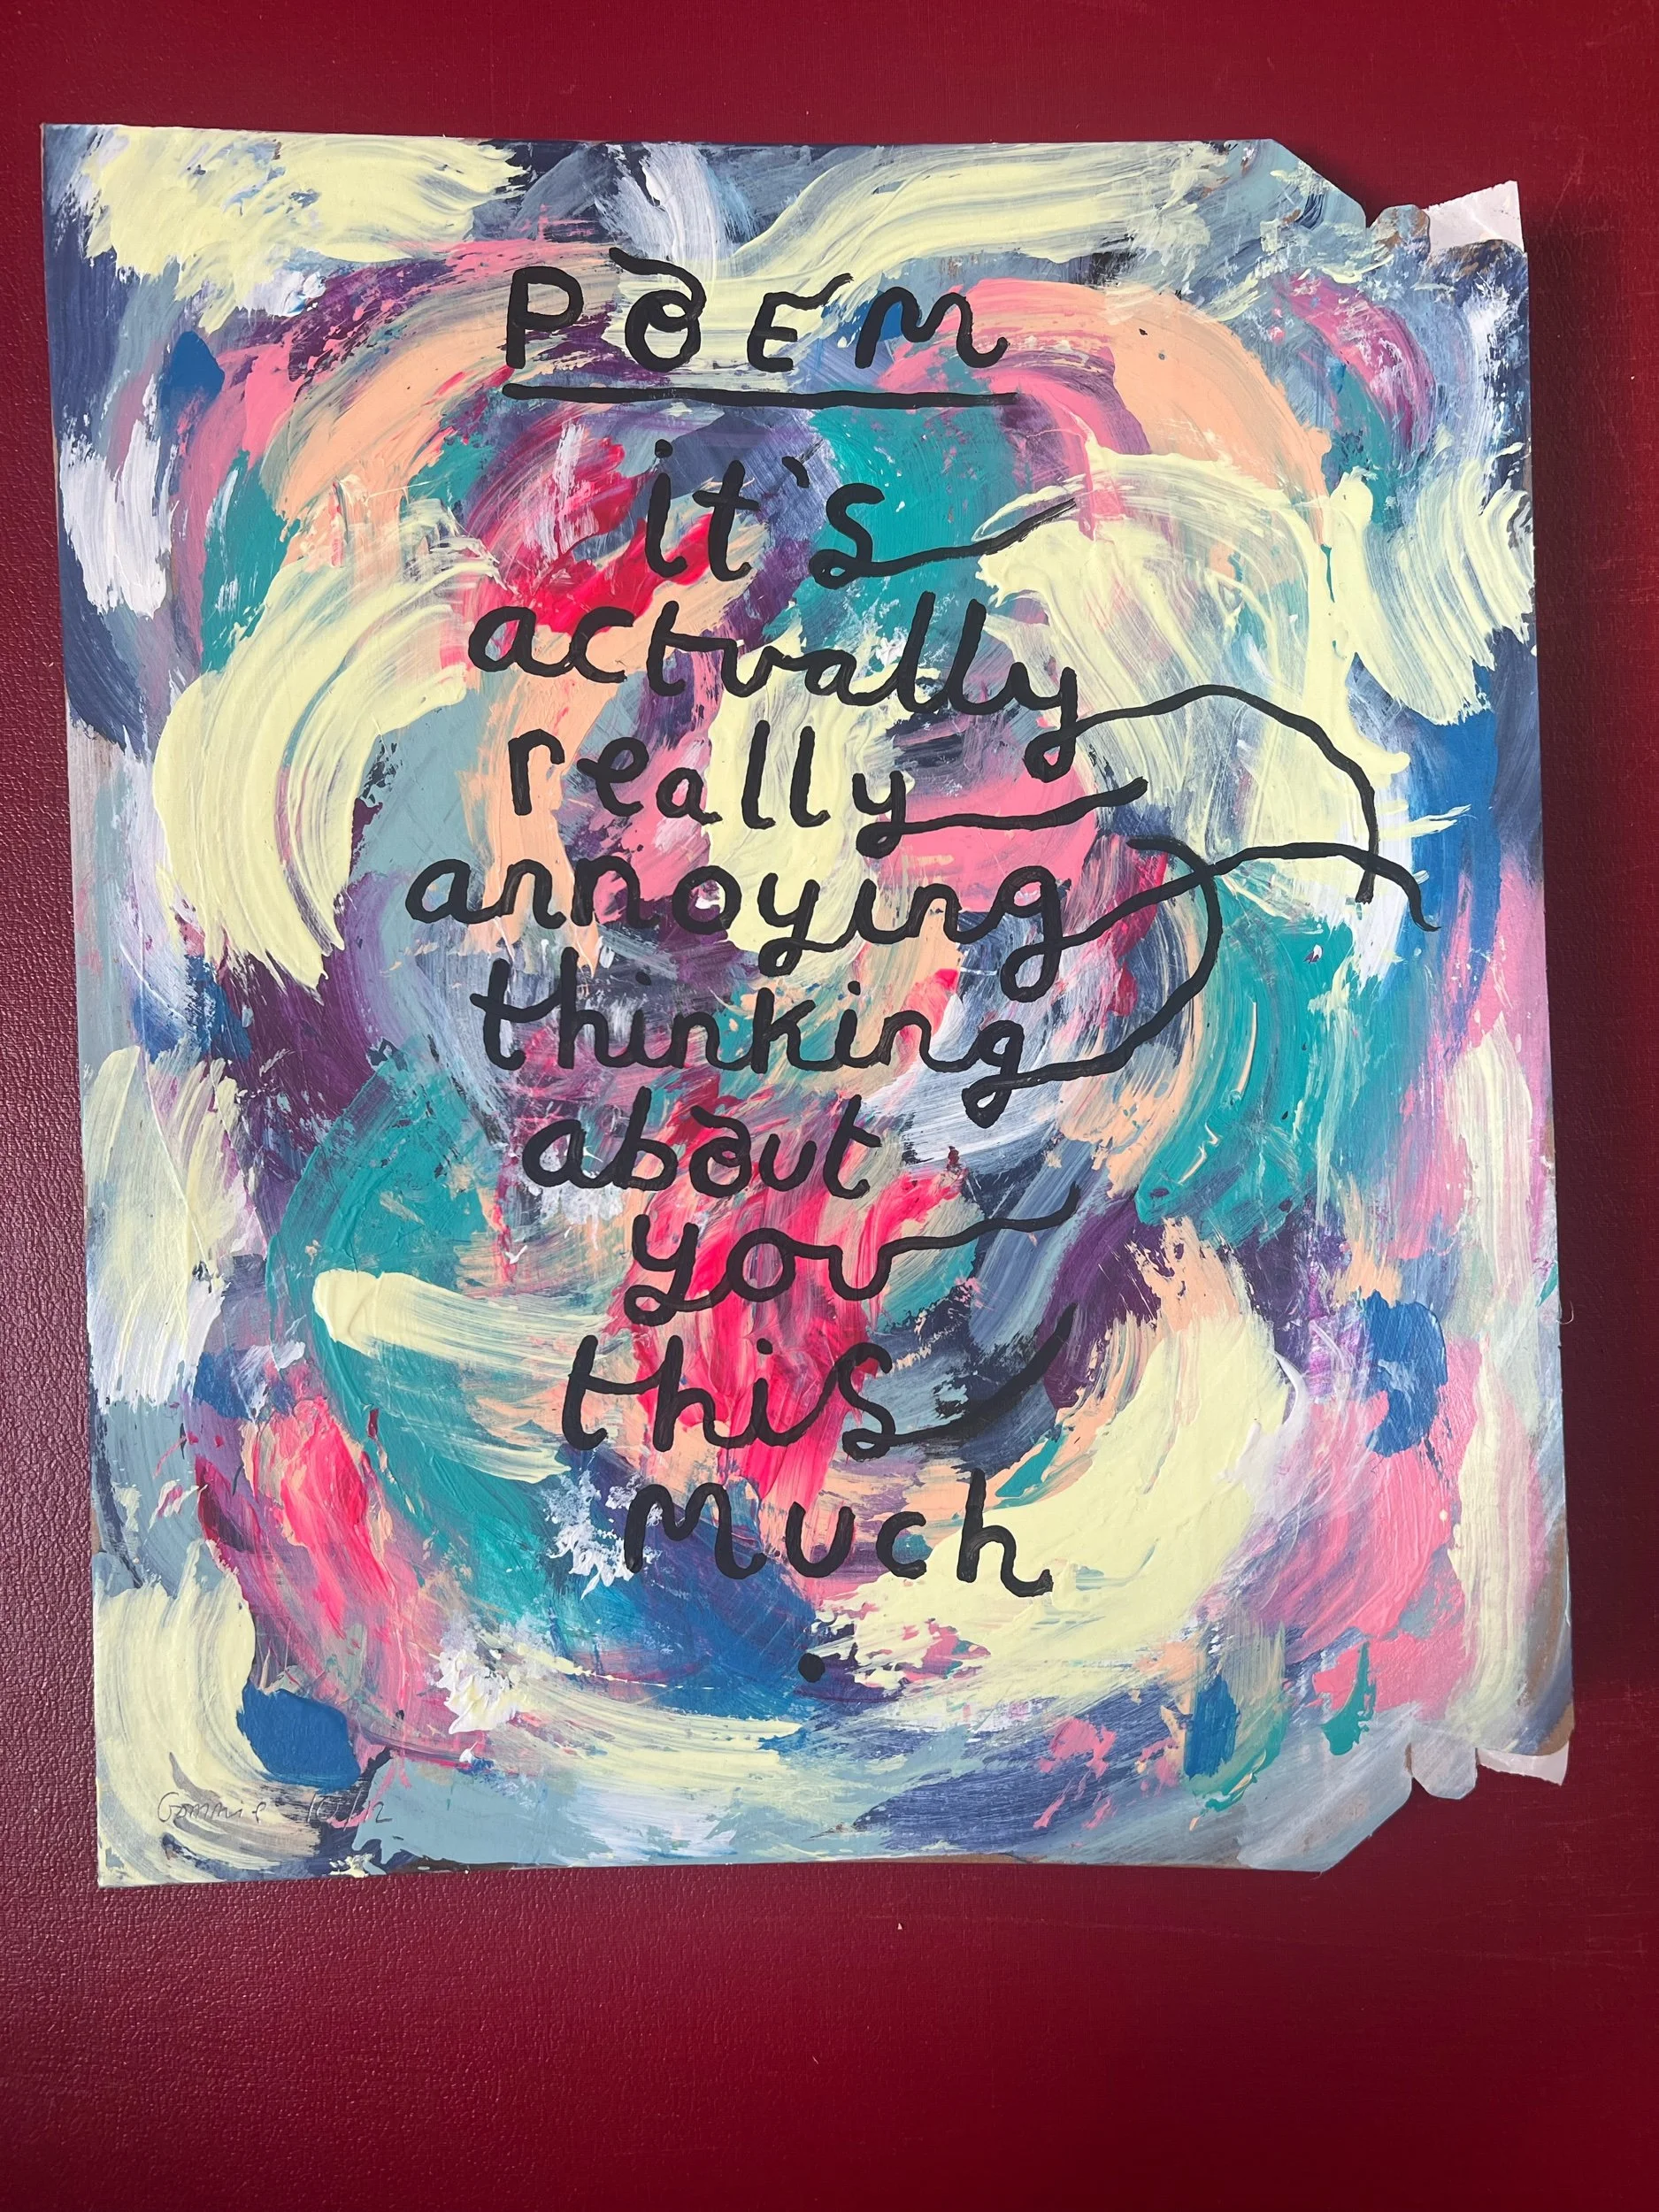 POEM
it's
actually
really
annoying
thinking
about
you
this
much
.
Gommie